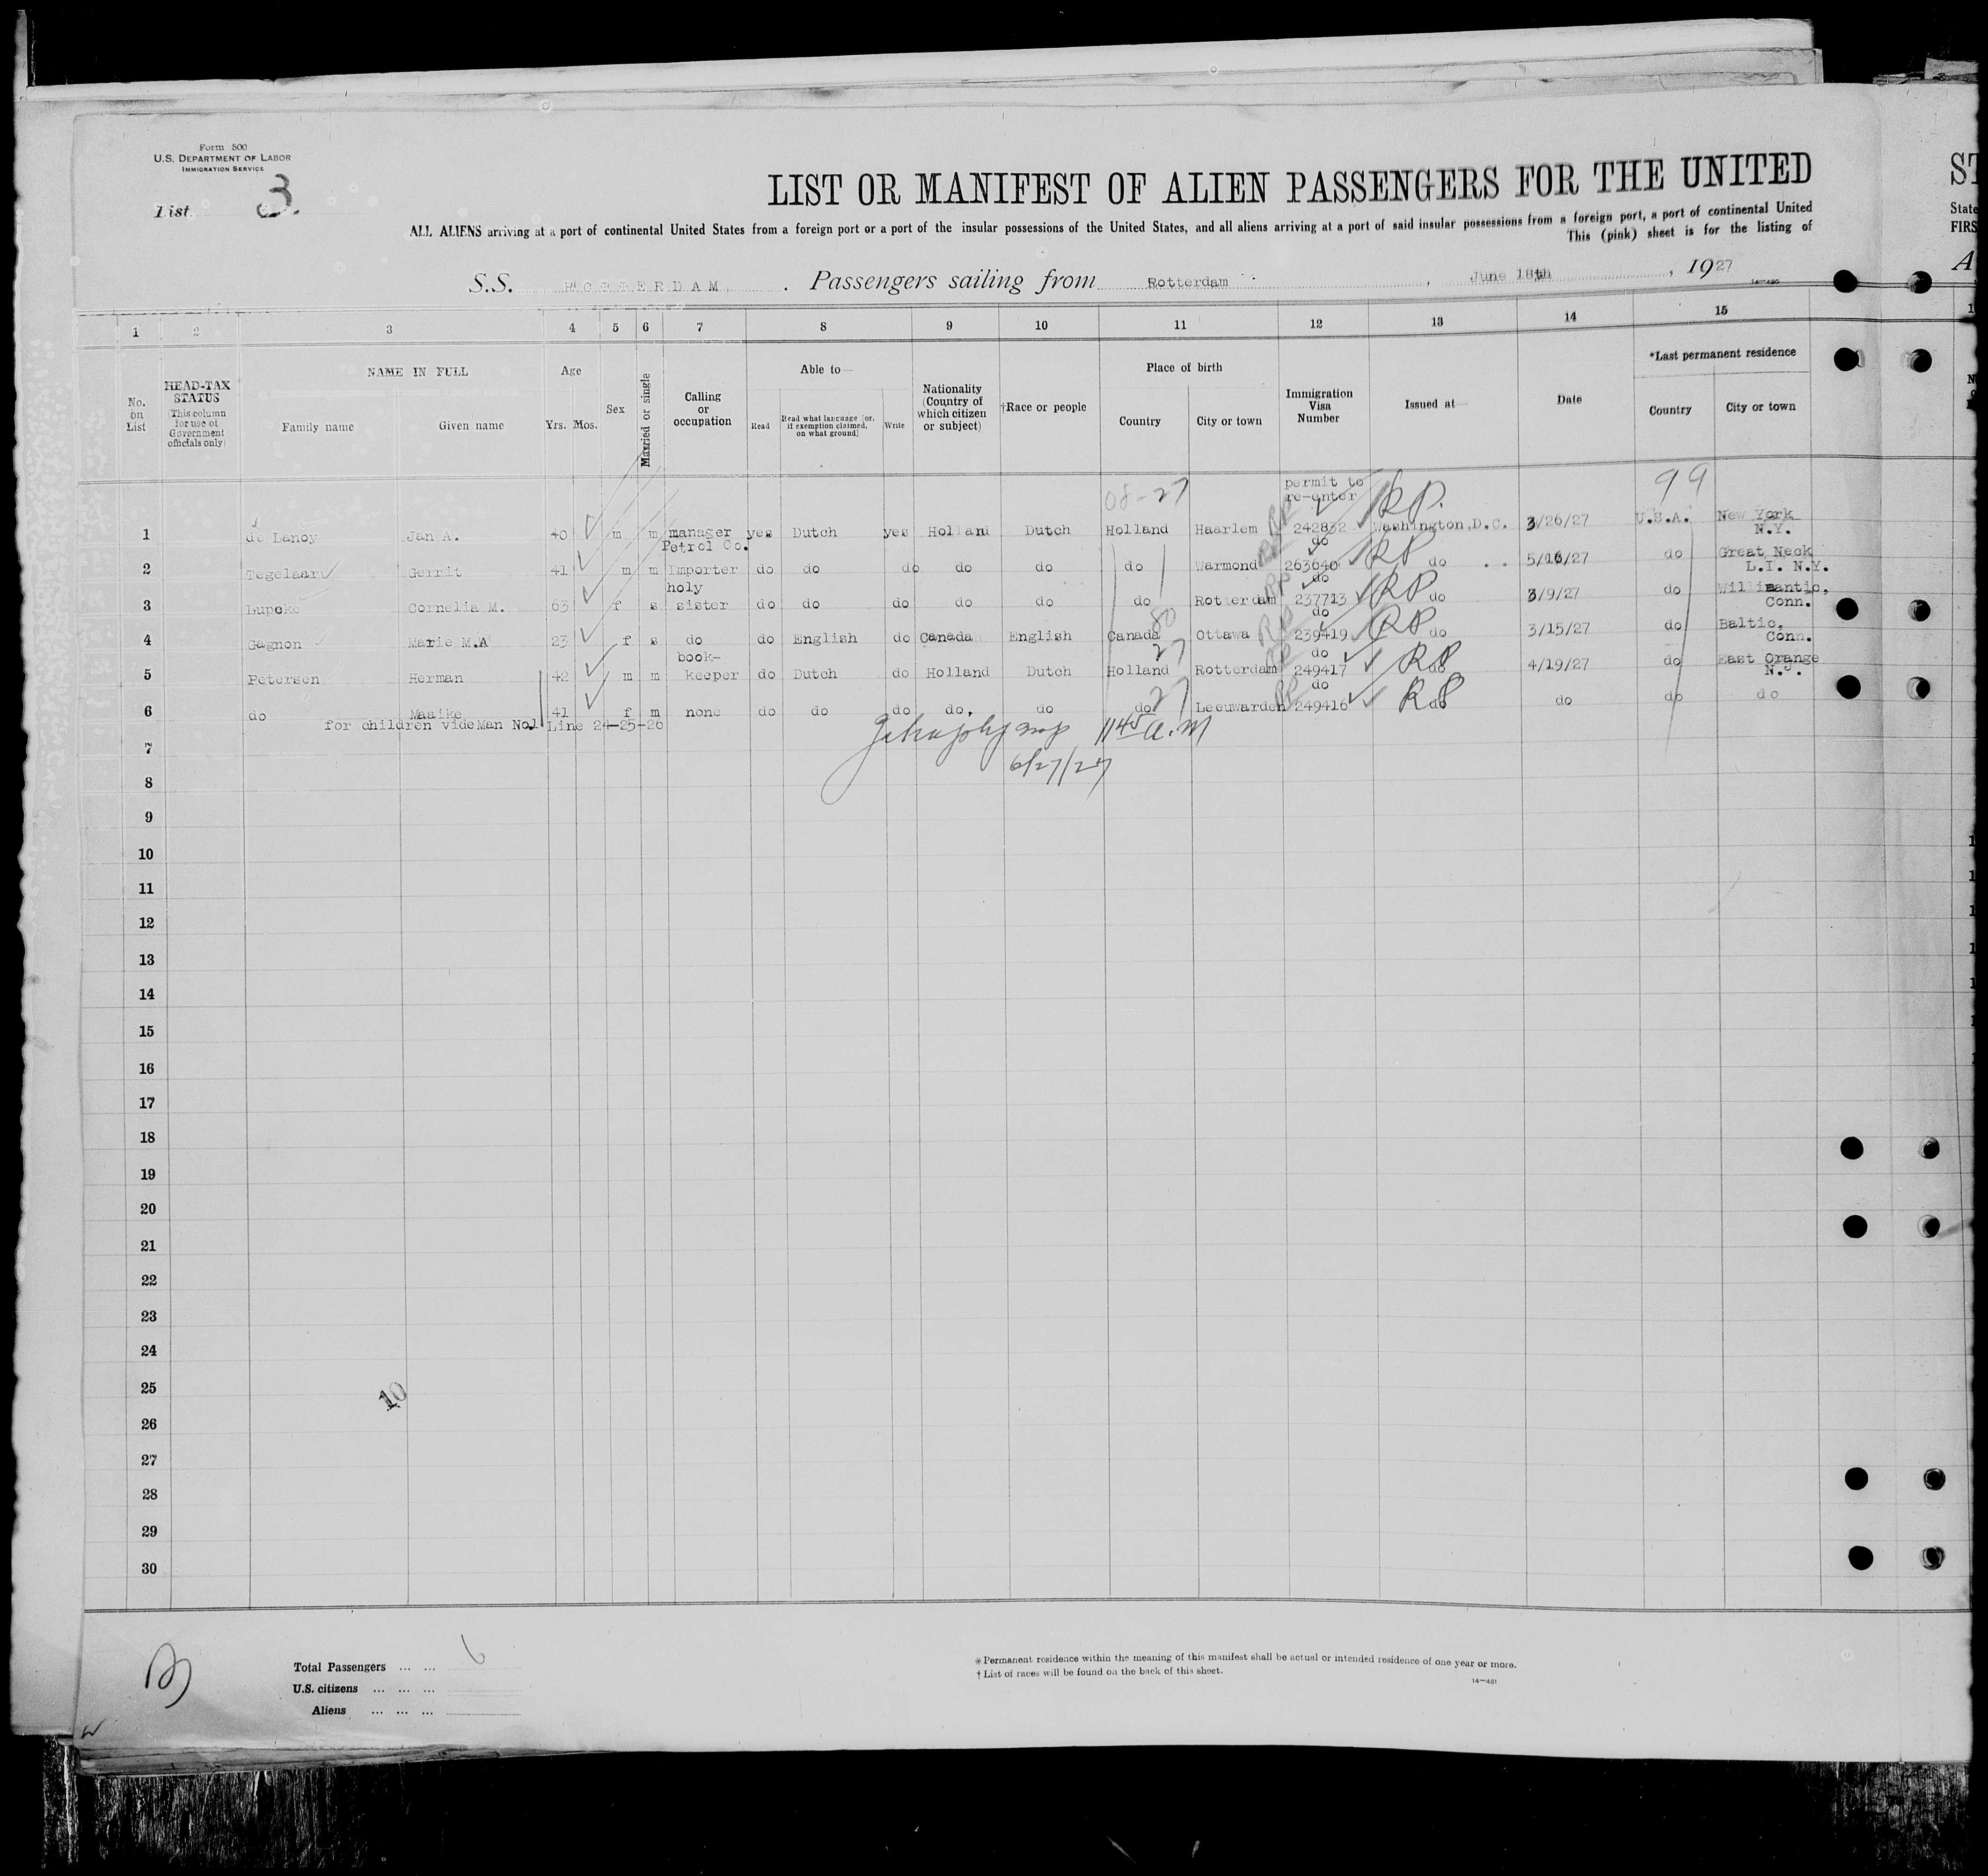 Form 500
U.S. DEPARTMENT OF LABOR
IMMIGRATION SERVICE
List 3.
LIST OR MANIFEST OF ALIEN PASSENGERS FOR THE UNITED
ST
ALL ALIENS arriving at a port of continental United States from a foreign port or a port of the insular possessions of the United States, and all aliens arriving at a port of said insular possessions from a foreign port, a port of continental United
State
This (pink) sheet is for the listing of
FIRS
S.S. ROTTERDAM. Passengers sailing from Rotterdam, June 18th, 1927
A
14-480
1 2 3 4 5 6 7 8 9 10 11 12 13 14 15
No. on List
HEAD-TAX STATUS (This column for use of Government officials only)
NAME IN FULL
Family name Given name
Age
Yrs. Mos.
Sex
Married or single
Calling or occupation
Able to—
Read Read what language [or, if exemption claimed, on what ground] Write
Nationality (Country of which citizen or subject)
†Race or people
Place of birth
Country City or town
Immigration Visa Number
Issued at—
Date
*Last permanent residence
Country City or town
08-27 permit to re-enter RP. 99
1 de Lanoy Jan A. 40 m m manager Petrol Co. yes Dutch yes Holland Dutch Holland Haarlem 242832 Washington,D.C. 3/26/27 U.S.A. New York N.Y.
2 Tegelaar Gerrit 41 m m Importer do do do do do do Warmond do 263640 RP do 5/16/27 do Great Neck L.I. N.Y.
3 Lupcke Cornelia M. 63 f s holy sister do do do do do do Rotterdam do 237713 RP do 3/9/27 do Willimantic, Conn.
4 Gagnon Marie M.A 23 f s do do English do Canada English Canada 80 Ottawa do 239419 RP do 3/15/27 do Baltic, Conn.
5 Petersen Herman 42 m m book-keeper do Dutch do Holland Dutch Holland 27 Rotterdam do 249417 RP do 4/19/27 do East Orange N.J.
6 do Maaike 41 f m none do do do do. do do 27 Leeuwarden do 249416 RP do do do do
for children vide Man No.1 Line 24-25-26
11 45 a.m
7
6/27/27
8
9
10
11
12
13
14
15
16
17
18
19
20
21
22
23
24
25
10
26
27
28
29
30
Total Passengers ... ... 6
U.S. citizens ... ... ...
Aliens ... ... ...
*Permanent residence within the meaning of this manifest shall be actual or intended residence of one year or more.
†List of races will be found on the back of this sheet.
14-481